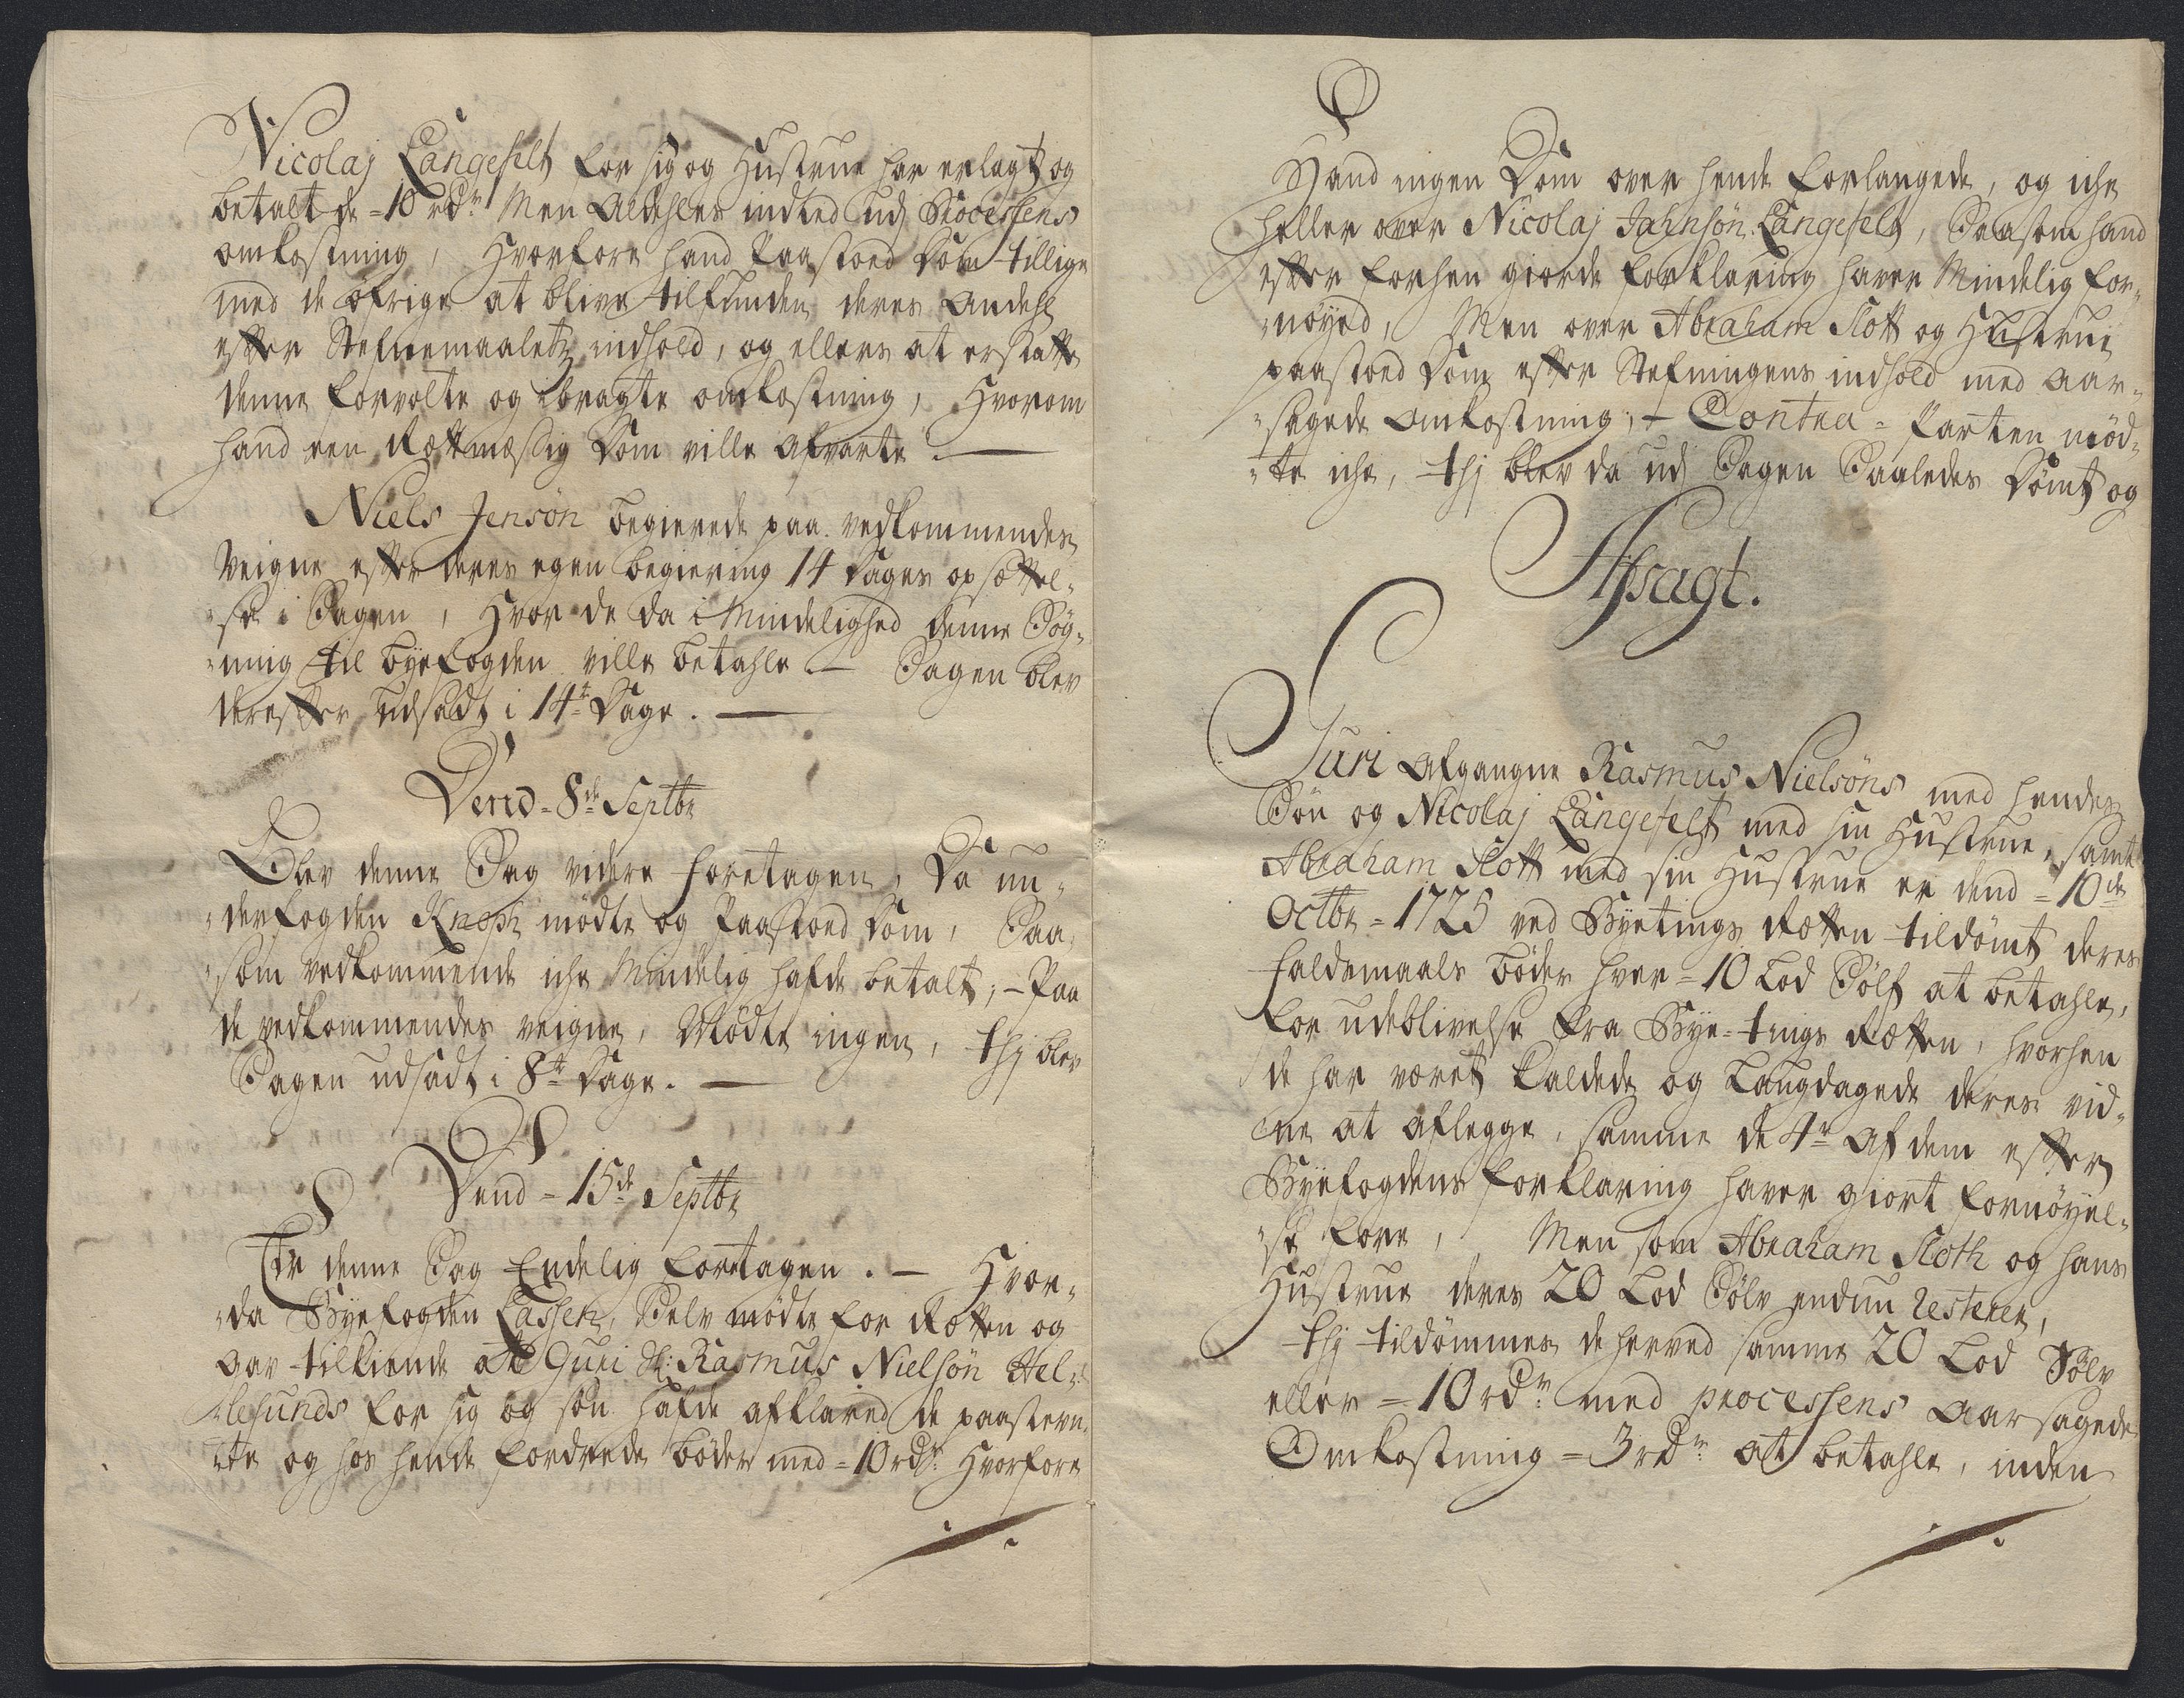 Nicolaj Langefelt for sig og Hustrue har erlagt og
betalt de = 10 rdr. Men aldeles indted udj Processens
omkostning, Hvorfore hand Paastoed Dom tillige
med de øfrige at blive tilfunden deres andehl
efter Stefnemaaletz indhold, og ellers at erstatte
denne forvolte og bragte omkostning, Hvorom
hand een Rætmæssig Dom ville afvarte. —
Niels Jensøn begierede paa vedkommendes
Veigne efter deres egen begiering 14 Dages opsættel-
-se i Sagen, Hvor de da i Mindelighed denne Søg-
-ning til byefogden ville betahle. — Sagen blev
derefter udsadt i 14te Dage. —
Dend = 8de Septbr
Blev denne Sag videre foretagen, Da un-
-derfogden Knoph mødte og Paastoed Dom, Saa-
-som vedkommende iche Mindelig hafde betalt; — Paa
de vedkommendes veigne, Mødte ingen, thj blev
Sagen udsadt i 8te Dage. —
Dend = 15de Septbr
Er denne Sag Endelig foretagen. — Hvor-
-da Byefogden Lassen, Selv mødte for Retten og
gav tilkiende at Guri Sl: Rasmus Nielsøn Hel-
-lesunds for sig og søn hafde afklared de paastevn-
-te og hos hende fordrede bøder med = 10 rdr: Hvorfore
Hand ingen Dom over hende forlangede, og iche
heller over Nicolaj Jahnsøn Langefelt, Saasom hand
efter forhen giorde forklaring haver Mindelig for-
-nøyed, Men over Abraham Slott og Hustrue
paastoed Dom efter Stefningens indhold med aar-
-sagede omkostning; — Contra = Parten mød-
-te iche, thj blev da udj Sagen Saaledes Dømt og
Afsagt.
Guri afgangne Rasmus Nielsøns med hendes
Søn og Nicolaj Langefelt med sin Hustrue, samt
Abraham Slott med sin Hustrue er dend = 10de
Octbr = 1725 ved Byetings Rætten tildømt deres
faldsmaals bøder hver = 10 Lod Sølf at betahle,
for udeblivelse fra Bye-tings Rætten, hvorhen
de har været kaldede og Laugdagede deres vid-
-ne at aflegge, samme de 4r af dem efter
Byefogdens forklaring haver giort fornøyel-
-se fore, Men som Abraham Sloth og hans
Hustrue deres 20 Lod Sølv endnu resterer,
thj tildømmes de herved samme 20 Lod Sølv
eller = 10 rdr: med processens aarsagede
Omkostning = 3 rdr: at betahle, inden